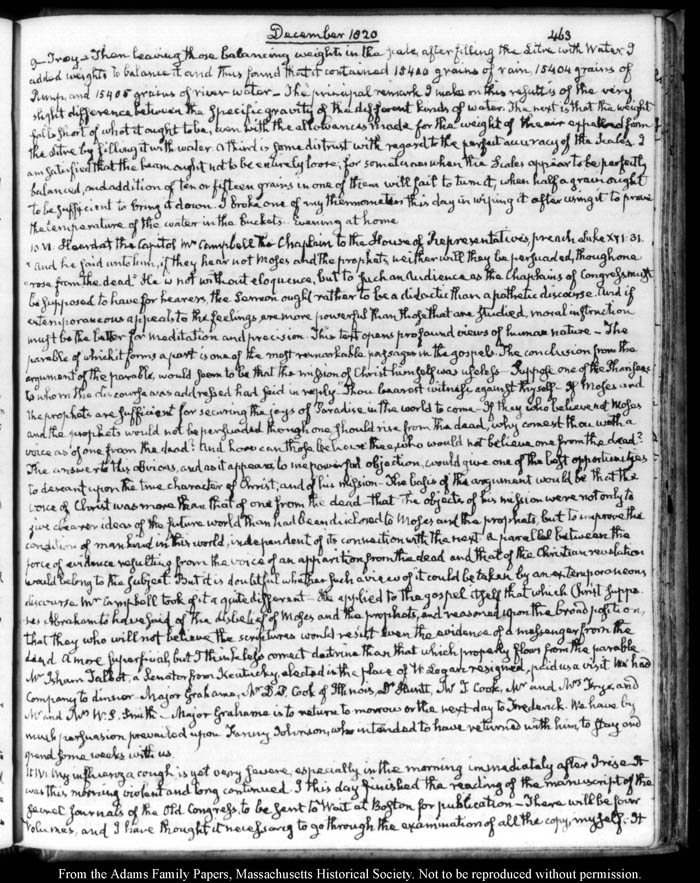 December 1820
463
of Troy. Then leaving those balancing weights in the pale, after filling the Litre with Water I
added weights to balance it and thus found that it contained 15400 grains of rain, 15404 grains of
Pump, and 15405 grains of river water — The principal remark I make on this result is of the very
slight difference between the Specific gravity of the different kinds of water. The next is that the weight
falls short of what it ought to be, even with the allowances made for the weight of the air expelled from
the Litre by filling it with water. A third is some distrust with regard to the perfect accuracy of the Scales. I
am satisfied that the beam ought not to be entirely loose; for sometimes when the Scales appear to be perfectly
balanced, an addition of ten or fifteen grains in one of them will fail to turn it, when half a grain ought
to be sufficient to bring it down. I broke one of my thermometers this day in wiping it after using it to prove
the temperature of the water in the buckets. Evening at home
10. VI. Heard at the Capitol Mr Campbell the Chaplain to the House of Representatives, preach Luke XVI. 31.
"And he said unto him, if they hear not Moses and the prophets, neither will they be persuaded, though one
"rose from the dead." He is not without eloquence, but to such an Audience as the Chaplains of Congress must
be supposed to have for hearers, the Sermon ought rather to be a didactic than a pathetic discourse. And if
extemporaneous appeals to the feelings, are more powerful than those that are studied, moral instruction
must be the better for meditation and precision. This text opens profound views of human nature — The
parable of which it forms a part is one of the most remarkable passages in the gospels. The conclusion from the
argument of the parable, would seem to be that the mission of Christ himself was useless — Suppose one of the Pharisees
to whom the discourse was addressed had said in reply, "Thou bearest witness against thyself — If Moses and
the prophets are sufficient for securing the joys of Paradise in the world to come — If they who believe not Moses
and the prophets would not be persuaded though one should rise from the dead, why comest thou with a
voice as of one from the dead? And how can those believe thee, who would not believe one from the dead?
The answer to this obvious, and as it appears to me powerful objection, would give one of the best opportunities
to descant upon the true character of Christ, and of his mission — The basis of the argument would be that the
voice of Christ was more than that of one from the dead — that the objects of his mission were not only to
give clearer ideas of the future world than had been disclosed to Moses and the prophets, but to improve the
condition of mankind in this world, independent of its connection with the next. A parallel between the
force of evidence resulting from the voice of an apparition from the dead and that of the Christian revelation
would belong to the subject. But it is doubtful whether such a view of it could be taken by an extemporaneous
discourse. Mr Campbell took of it a quite different — He applied to the gospel itself that which Christ suppo-
ses Abraham to have said of the disbelief of Moses and the prophets, and reasoned upon the broad position,
that they who will not believe the scriptures would resist even the evidence of a messenger from the
dead. A more superficial, but I think less correct doctrine than that which properly flows from the parable.
Mr Isham Talbot, a Senator from Kentucky, elected in the place of W. Logan resigned, paid us a visit. We had
Company to dinner. Major Grahame, Mr D. P. Cook of Illinois, Dr Huntt, Mr J. Cook, Mr and Mrs Frye, and
Mr and Mrs W. S. Smith — Major Grahame is to return to morrow or the next day to Frederick. We have by
much persuasion prevailed upon Fanny Johnson, who intended to have returned with him, to stay and
spend some weeks with us.
11. IV. My influenza cough is yet very severe, especially in the morning immediately after I rise. It
was this morning violent and long continued. I this day finished the reading of the manuscript of the
secret Journals of the Old Congress, to be sent to Wait at Boston for publication — There will be four
Volumes, and I have thought it necessary to go through the examination of all the copy, myself. It
From the Adams Family Papers, Massachusetts Historical Society. Not to be reproduced without permission.